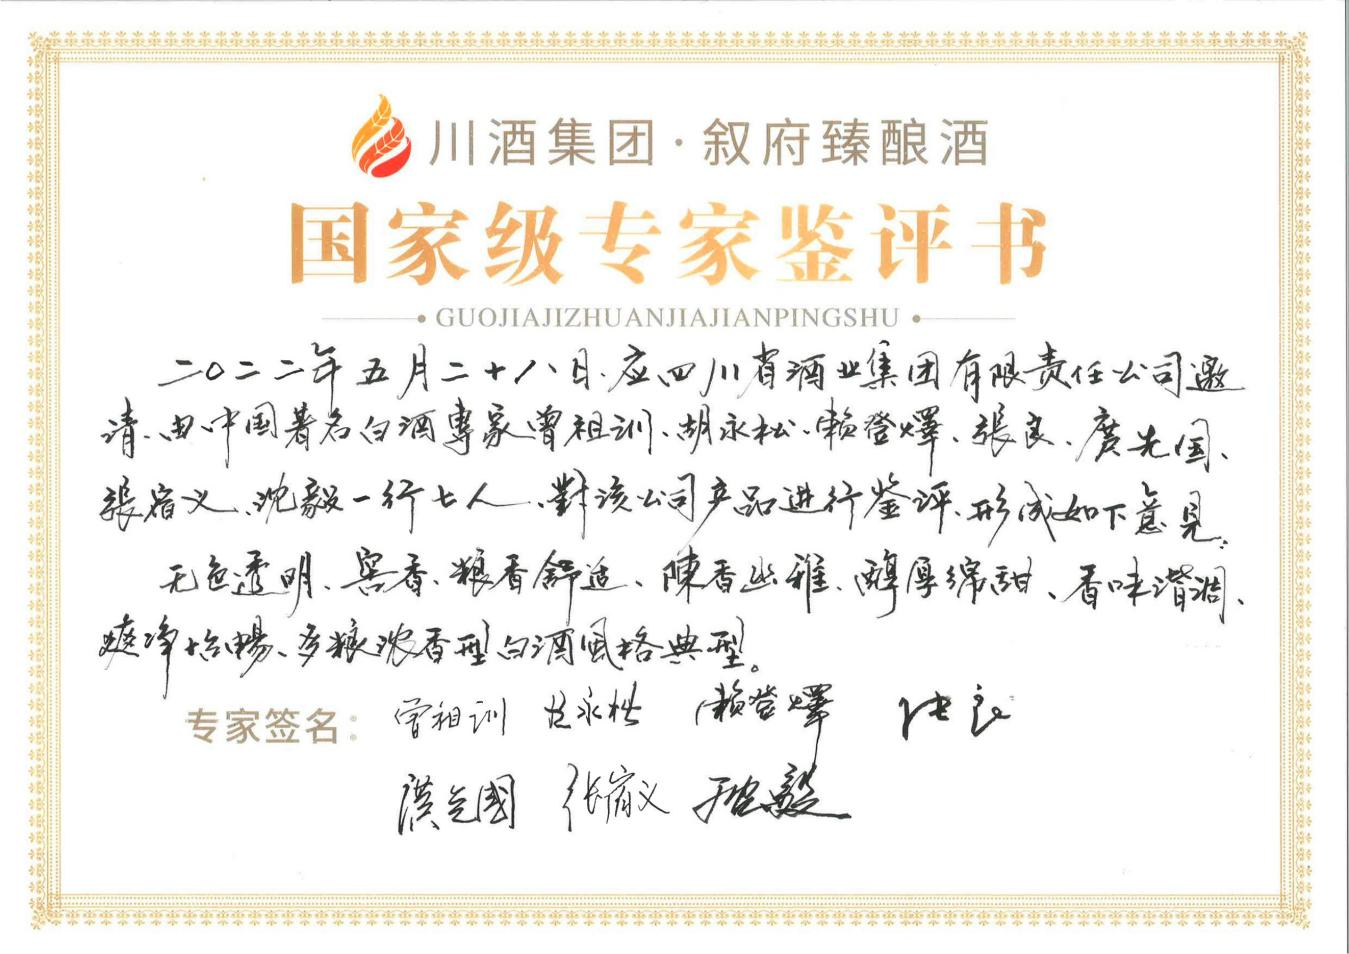 川酒集团·叙府臻酿酒
国家级专家鉴评书
GUOJIAJIZHUANJIAJIANPINGSHU
二〇二二年五月二十八日、应四川省酒业集团有限责任公司邀
请、由中国著名白酒專家曾祖训、胡永松、赖登燡、張良、廣先国、
張宿义、沈毅一行七人、對该公司产品进行鉴评、形成如下意见:
无色透明、窖香、粮香舒适、陳香幽雅、醇厚绵甜、香味谐调、
爽净怡暢、多粮浓香型白酒风格典型。
专家签名: 曾祖训 胡永松 赖登燡 张良
张宿义 沈毅